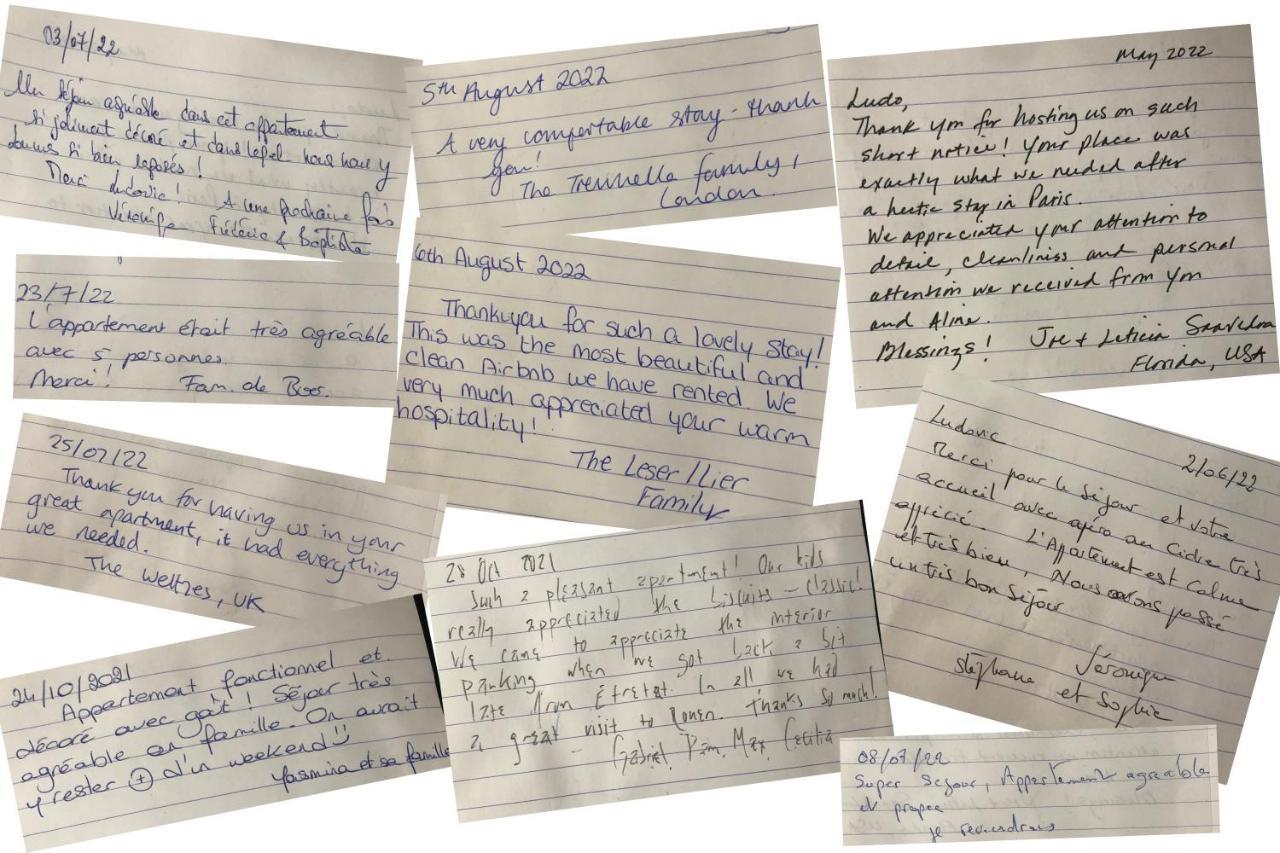 03/07/22
Un séjour agréable dans cet appartement
si joliment décoré et dans lequel nous nous y
sommes si bien reposés !
Merci Ludovic ! A une prochaine fois
Véronique Frédéric & Baptiste
23/7/22
L'appartement était très agréable
avec 5 personnes
Merci! Fam. de Boos.
25/07/22
Thank you for having us in your
great apartment, it had everything
we needed.
The Welthes, UK
24/10/2021
Appartement fonctionnel et
décoré avec goût ! Séjour très
agréable en famille. On aurait
y rester + d'un weekend
Yasmina et sa famille
5th August 2022
A very comfortable stay - thank
you!
The family,
London.
6th August 2022
Thankyou for such a lovely stay!
This was the most beautiful and
clean Airbnb we have rented. We
very much appreciated your warm
hospitality!
The Leser/Lier
Family
28 Oct 2021
Such a pleasant apartment! Our kids
really appreciated the biscuits - classic!
We came to appreciate the interior
parking when we got back a bit
late from Étretat. In all we had
a great visit to Rouen. Thanks so much!
- Gabriel, Pam, Max,
May 2022
Ludo,
Thank you for hosting us on such
short notice! Your place was
exactly what we needed after
a hectic stay in Paris.
We appreciated your attention to
detail, cleanliness and personal
attention we received from you
and Aline.
Blessings! Joe & Leticia Saavedra
Florida, USA
Ludovic
2/06/22
Merci pour le séjour et votre
accueil avec apéro au cidre très
apprécié. L'Appartement est calme
et très bien, Nous avons passé
un très bon séjour
Véronique
Stéphane et Sophie
08/07/22
Super sejour, Appartement agreable
et propre
je reviendrais